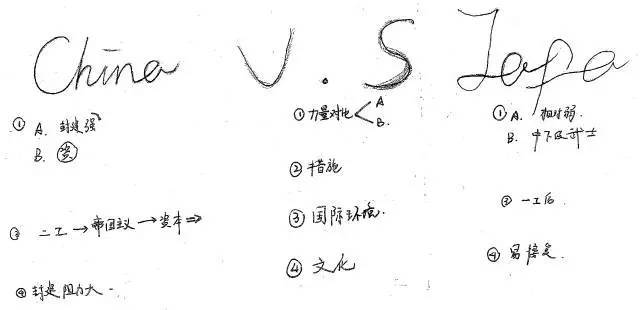 China V.S Japa
① A. 封建强
B. 资
③ 二工→帝国主义→资本⇒
④ 封建阻力大.
① 力量对比 A
B.
② 措施
③ 国际环境.
④ 文化
① A. 相对弱.
B. 中下级武士
③ 一工后
④ 易接受.